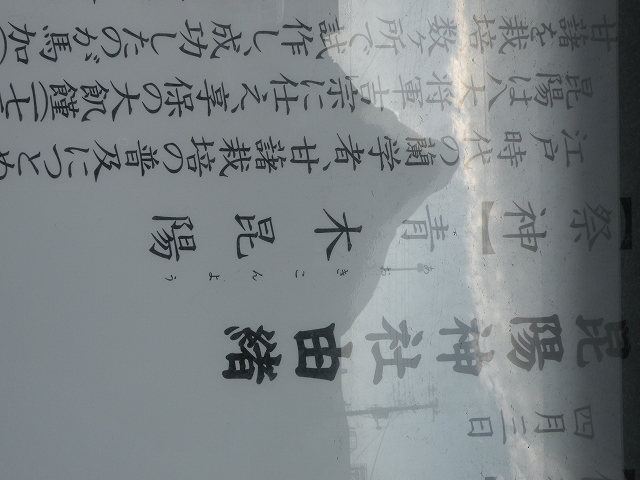 四月三日
昆陽神社由緒
【祭神】青木昆陽
あおきこんよう
江戸時代の蘭学者、甘藷栽培の普及につとめ
昆陽は八大将軍吉宗に仕え、享保の大飢饉(一七
甘藷を栽培数ヶ所で試作し、成功したのが馬加(